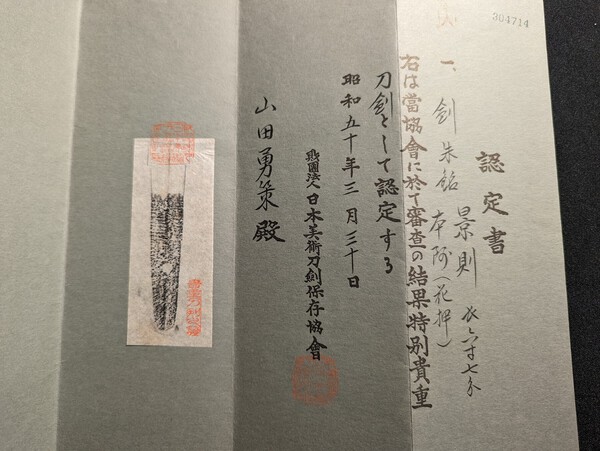 304714
認定書
一、剣 朱銘 景則 長六寸七分
本阿(花押)
右は當協會に於て審査の結果特別貴重
刀劍として認定する
昭和五十年三月三十日
財團法人日本美術刀劍保存協會
山田勇策殿